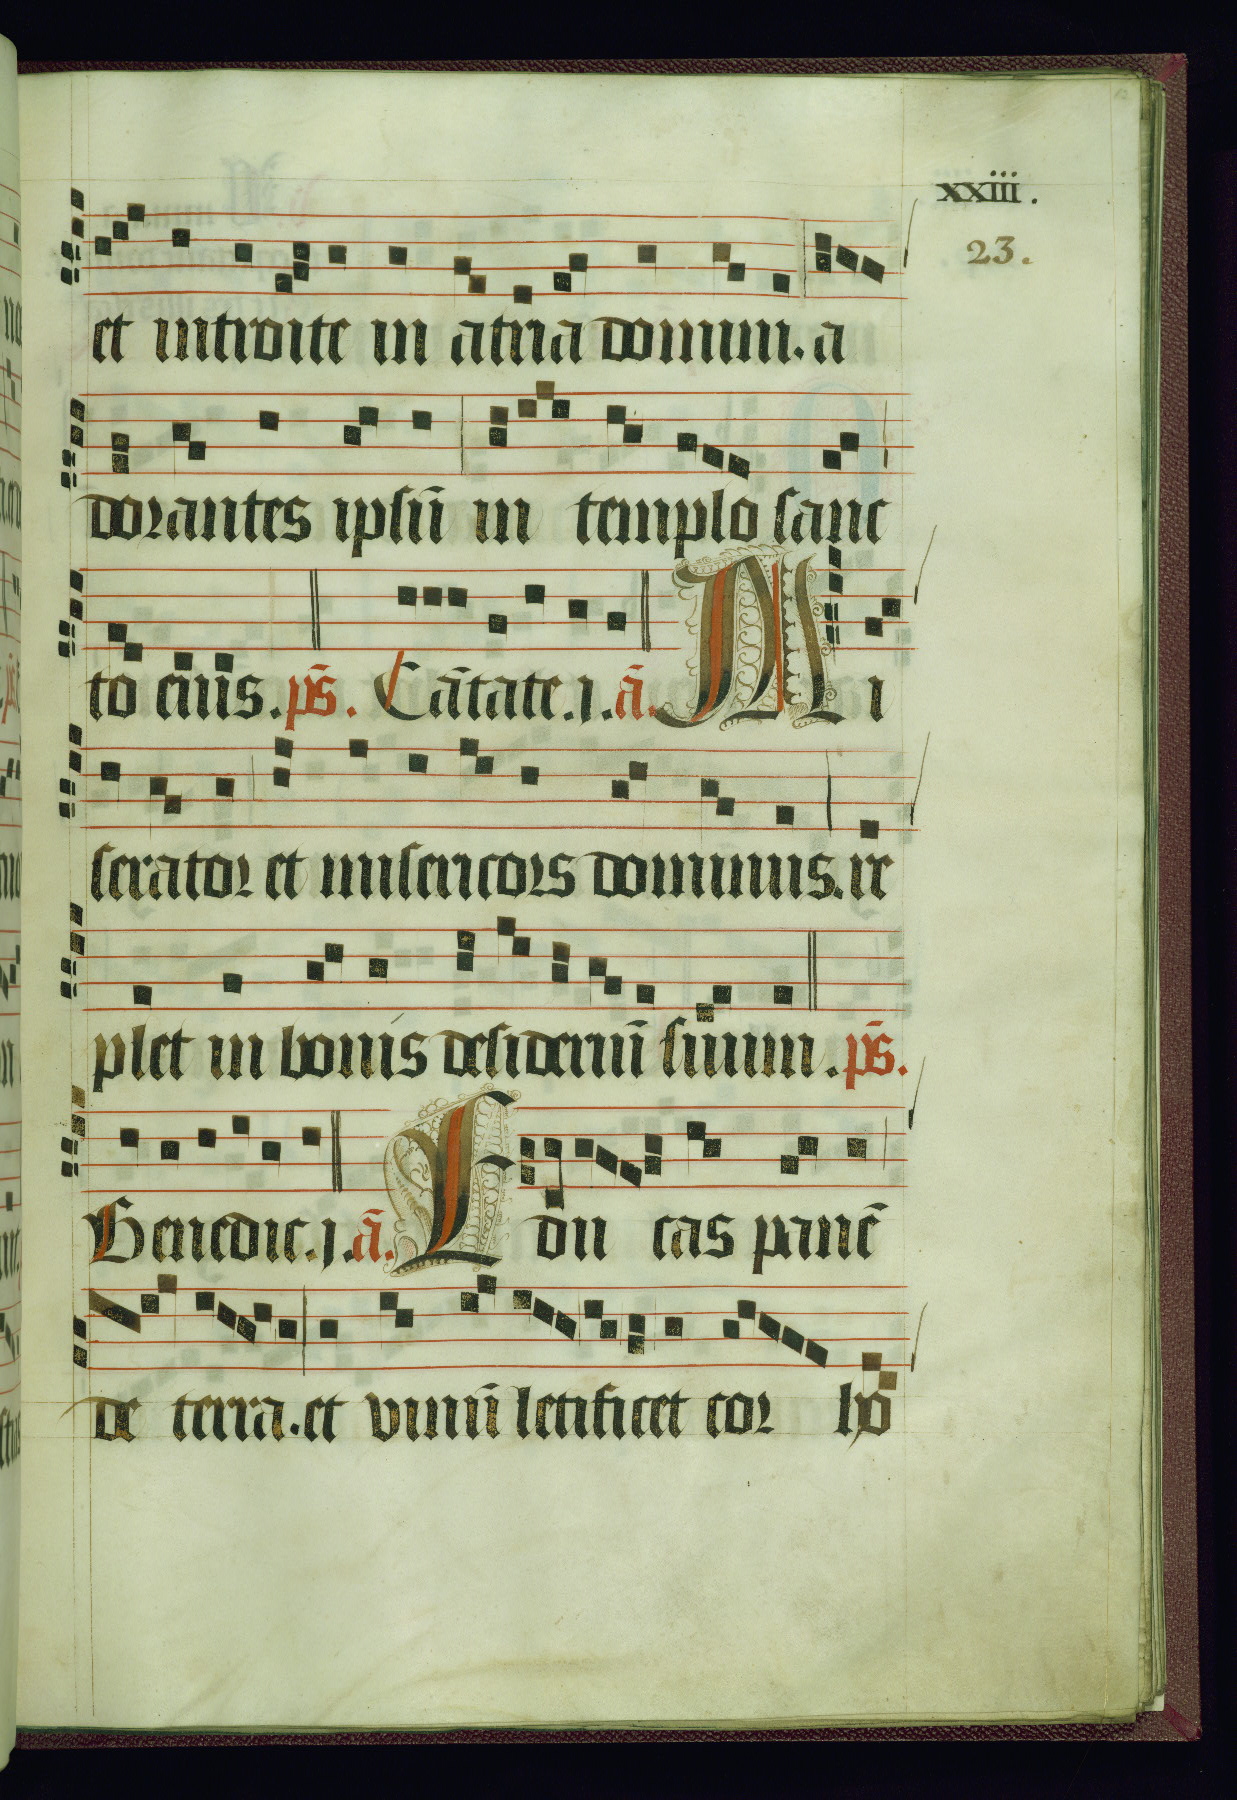 xxiii.
23.
et introite in atria domini. a
dorantes ipsū in templo sanc
to eius. ps̄. Cātate. i. ā. M i
serator et misericors dominus. re
plet in bonis desideriū suum. ps̄.
Benedic. i. ā. E dū cas panē
de terra. et vinū letificet cor ho